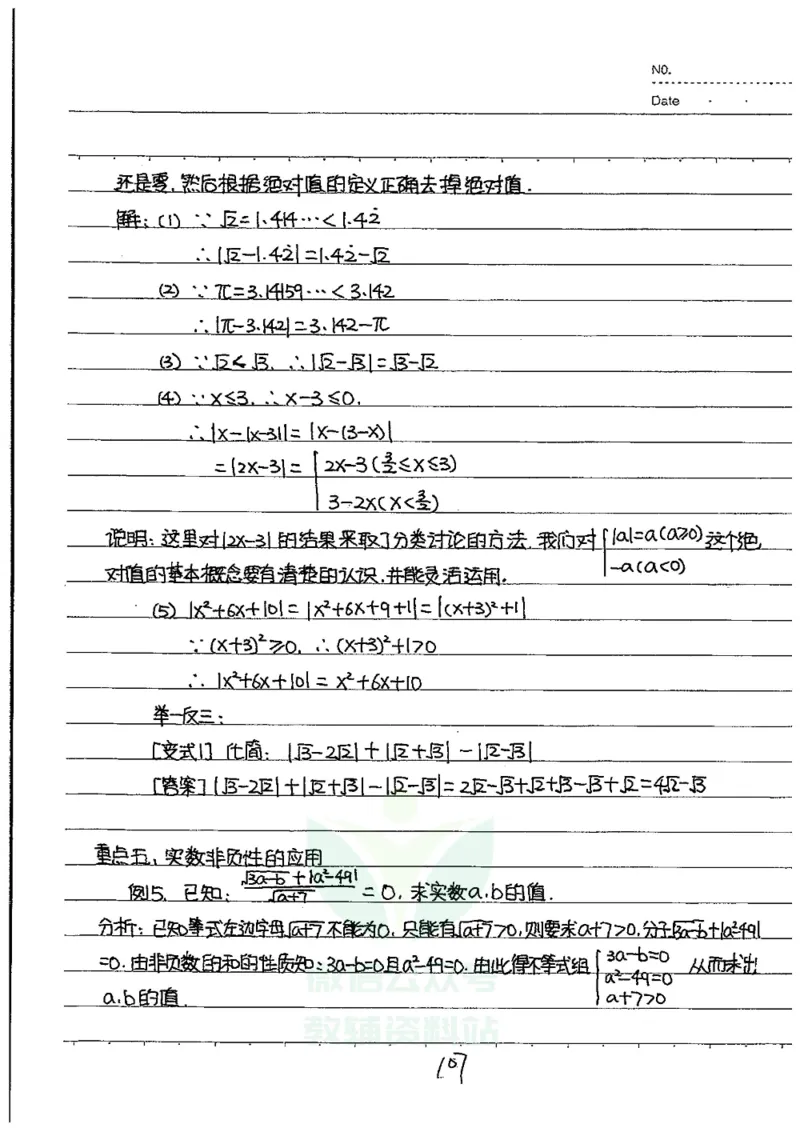 NO.
Date
还是零,然后根据绝对值的定义正确去掉绝对值.
解:(1) ∵ √2=1.414…<1.42
∴|√2-1.42|=1.42-√2
(2) ∵ π=3.14159…<3.142
∴|π-3.142|=3.142-π
(3) ∵√2<√3, ∴|√2-√3|=√3-√2
(4) ∵x≤3, ∴x-3≤0,
∴|x-|x-3||=|x-(3-x)|
=|2x-3|= { 2x-3 (3/2≤x≤3)
3-2x(x<3/2)
说明:这里对|2x-3|的结果采取了分类讨论的方法,我们对 { |a|=a(a≥0) 这个绝
-a(a<0)
对值的基本概念要有清楚的认识,并能灵活运用.
(5) |x²+6x+10|=|x²+6x+9+1|=|(x+3)²+1|
∵(x+3)²≥0, ∴(x+3)²+1>0
∴ |x²+6x+10|=x²+6x+10
举一反三:
[变式1] 化简: |√3-2√2|+|√2+√3|-|√2-√3|
[答案] |√3-2√2|+|√2+√3|-|√2-√3|=2√2-√3+√2+√3-√3+√2=4√2-√3
重点五、实数非负性的应用
例5. 已知: (√(3a-b)+|a²-49|)/√(a+7) =0, 求实数a,b的值.
分析:已知等式左边字母√(a+7)不能为0,只能有√(a+7)>0,则要求a+7>0,分子√(3a-b)+|a²-49|
=0,由非负数的和的性质知:3a-b=0且a²-49=0,由此得不等式组 { 3a-b=0 从而求出
a²-49=0
a+7>0
a,b的值.
微信公众号
教辅资料站
107